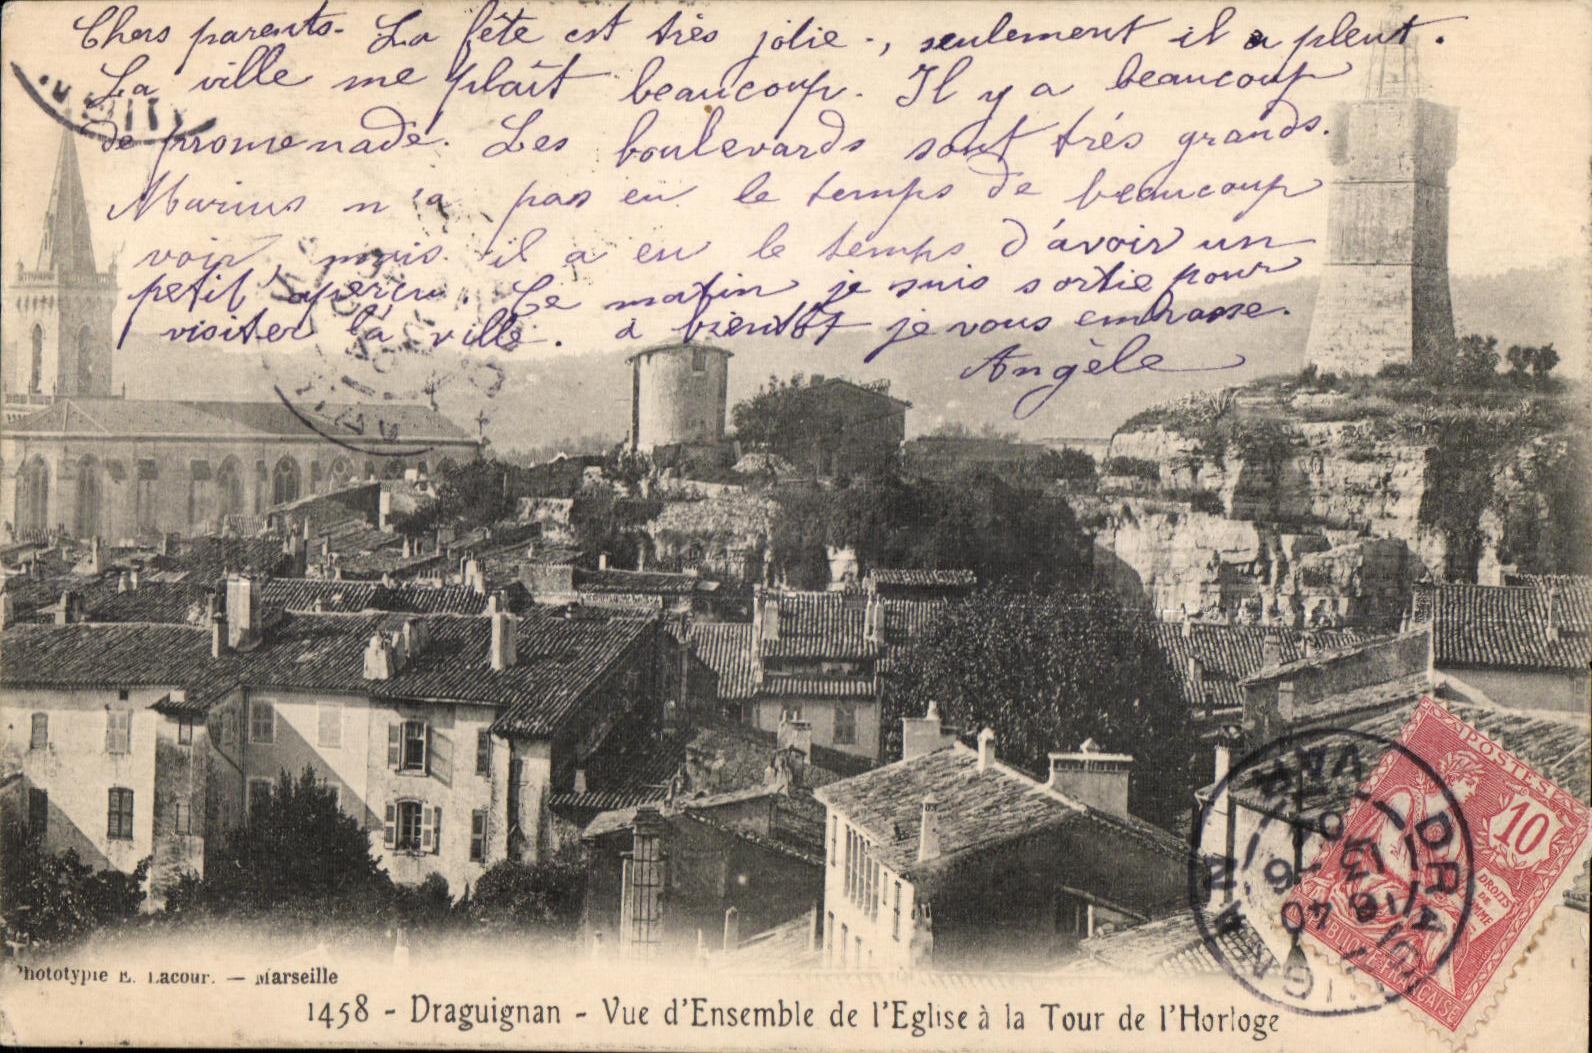 Chers parents. La fête est très jolie, seulement il a pleut.
La ville me plaît beaucoup. Il y a beaucoup
de promenade. Les boulevards sont très grands.
Marius n'a pas eu le temps de beaucoup
voir, mais il a eu le temps d'avoir un
petit aperçu. Ce matin je suis sortie pour
visiter la ville. à bientôt je vous embrasse.
Angèle
POSTES
10
DROITS DE
RÉPUBLIQUE FRANÇAISE
DRAGUIGNAN
VAR
Phototypie E. Lacour. — Marseille
1458 - Draguignan - Vue d'Ensemble de l'Eglise à la Tour de l'Horloge